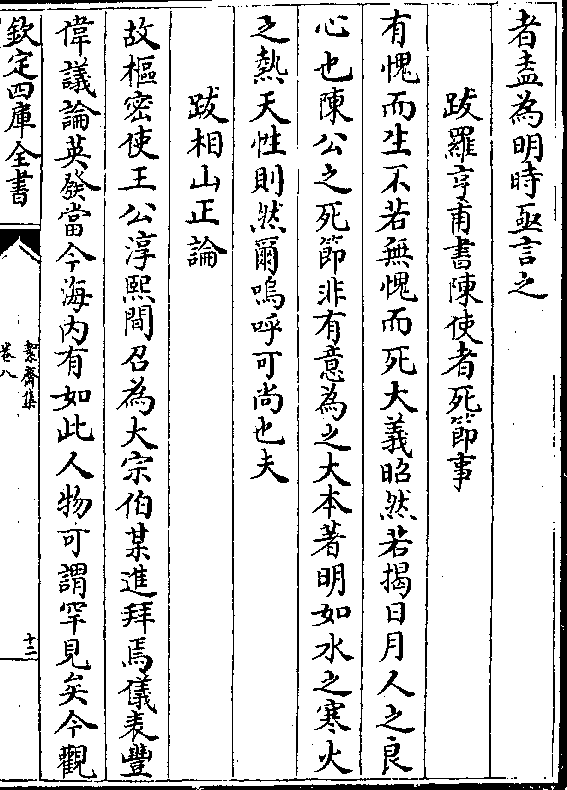 者盍為明時亟言之
跋羅亨甫書陳使者死節事
有愧而生不若無愧而死大義昭然若揭日月人之良
心也陳公之死節非有意為之大本著明如水之寒火
之熱天性則然爾嗚呼可尚也夫
跋相山正論
故樞密使王公淳熙間召為大宗伯某進拜焉儀表豐
偉議論英發當今海内有如此人物可謂罕見矣今觀
欽定四庫全書
絜齋集
卷八
十二